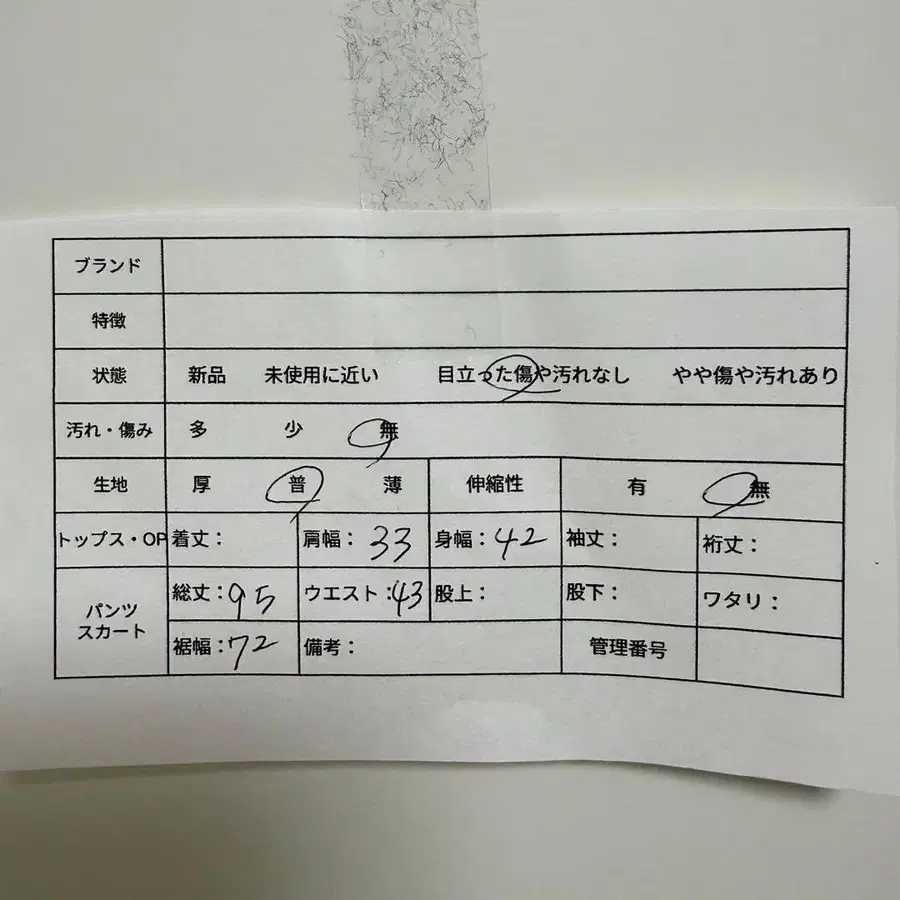 ブランド
特徴
状態 新品 未使用に近い 目立った傷や汚れなし やや傷や汚れあり
汚れ・傷み 多 少 無
生地 厚 普 薄 伸縮性 有 無
トップス・OP 着丈: 肩幅: 33 身幅: 42 袖丈: 裄丈:
パンツ スカート 総丈: 95 ウエスト: 43 股上: 股下: ワタリ:
裾幅: 72 備考: 管理番号